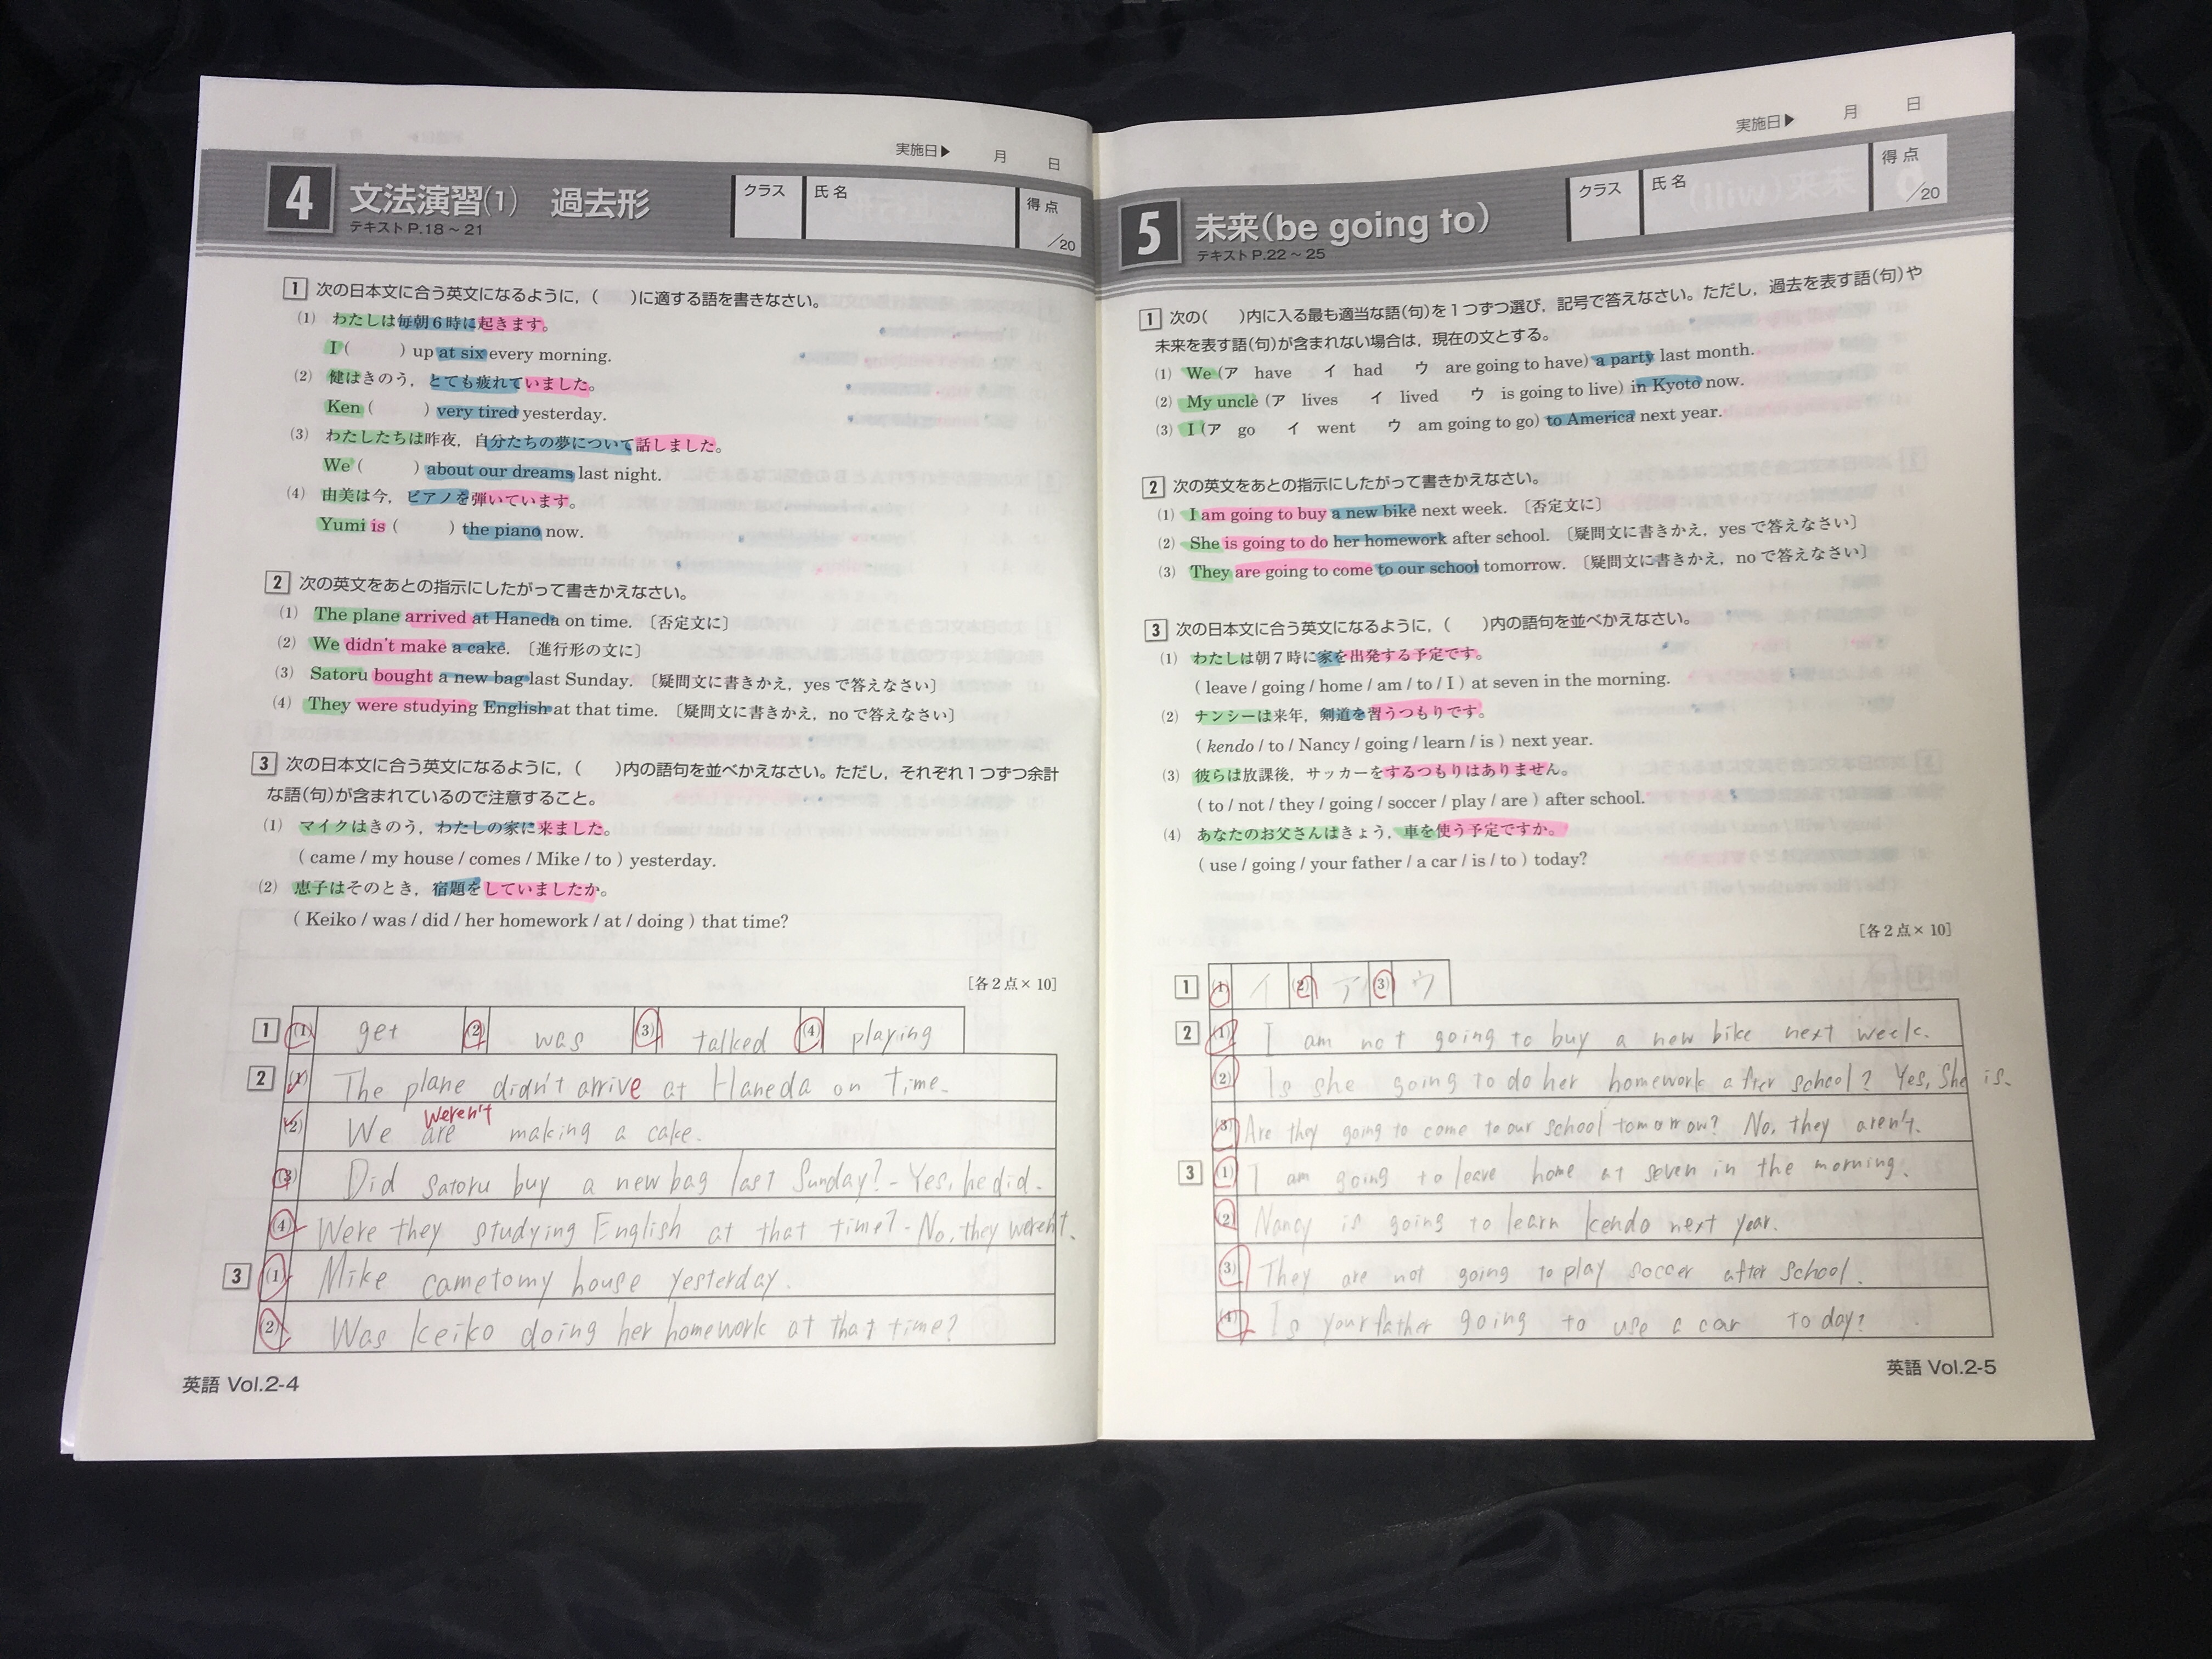 実施日▶ 月 日
4 文法演習(1) 過去形
テキストP.18~21
クラス 氏名 得点 /20
1 次の日本文に合う英文になるように,( )に適する語を書きなさい。
(1) わたしは毎朝6時に起きます。
I ( ) up at six every morning.
(2) 健はきのう,とても疲れていました。
Ken ( ) very tired yesterday.
(3) わたしたちは昨夜,自分たちの夢について話しました。
We ( ) about our dreams last night.
(4) 由美は今,ピアノを弾いています。
Yumi is ( ) the piano now.
2 次の英文をあとの指示にしたがって書きかえなさい。
(1) The plane arrived at Haneda on time. 〔否定文に〕
(2) We didn't make a cake. 〔進行形の文に〕
(3) Satoru bought a new bag last Sunday. 〔疑問文に書きかえ,yesで答えなさい〕
(4) They were studying English at that time. 〔疑問文に書きかえ,noで答えなさい〕
3 次の日本文に合う英文になるように,( )内の語句を並べかえなさい。ただし,それぞれ1つずつ余計
な語(句)が含まれているので注意すること。
(1) マイクはきのう,わたしの家に来ました。
( came / my house / comes / Mike / to ) yesterday.
(2) 恵子はそのとき,宿題をしていましたか。
( Keiko / was / did / her homework / at / doing ) that time?
[各2点×10]
1 (1) get (2) was (3) talked (4) playing
2 (1) The plane didn't arrive at Haneda on time.
weren't
(2) We are making a cake.
(3) Did Satoru buy a new bag last Sunday? - Yes, he did.
(4) Were they studying English at that time? - No, they weren't.
3 (1) Mike came to my house yesterday.
(2) Was Keiko doing her homework at that time?
英語 Vol.2-4
実施日▶ 月 日
5 未来(be going to)
テキストP.22~25
クラス 氏名 得点 /20
1 次の( )内に入る最も適当な語(句)を1つずつ選び,記号で答えなさい。ただし,過去を表す語(句)や
未来を表す語(句)が含まれない場合は,現在の文とする。
(1) We (ア have イ had ウ are going to have) a party last month.
(2) My uncle (ア lives イ lived ウ is going to live) in Kyoto now.
(3) I (ア go イ went ウ am going to go) to America next year.
2 次の英文をあとの指示にしたがって書きかえなさい。
(1) I am going to buy a new bike next week. 〔否定文に〕
(2) She is going to do her homework after school. 〔疑問文に書きかえ,yesで答えなさい〕
(3) They are going to come to our school tomorrow. 〔疑問文に書きかえ,noで答えなさい〕
3 次の日本文に合う英文になるように,( )内の語句を並べかえなさい。
(1) わたしは朝7時に家を出発する予定です。
( leave / going / home / am / to / I ) at seven in the morning.
(2) ナンシーは来年,剣道を習うつもりです。
( kendo / to / Nancy / going / learn / is ) next year.
(3) 彼らは放課後,サッカーをするつもりはありません。
( to / not / they / going / soccer / play / are ) after school.
(4) あなたのお父さんはきょう,車を使う予定ですか。
( use / going / your father / a car / is / to ) today?
[各2点×10]
1 (1) イ (2) ア (3) ウ
2 (1) I am not going to buy a new bike next week.
(2) Is she going to do her homework after school? Yes, She is.
(3) Are they going to come to our school tomorrow? No, they aren't.
3 (1) I am going to leave home at seven in the morning.
(2) Nancy is going to learn kendo next year.
(3) They are not going to play soccer after school.
(4) Is your father going to use a car today?
英語 Vol.2-5